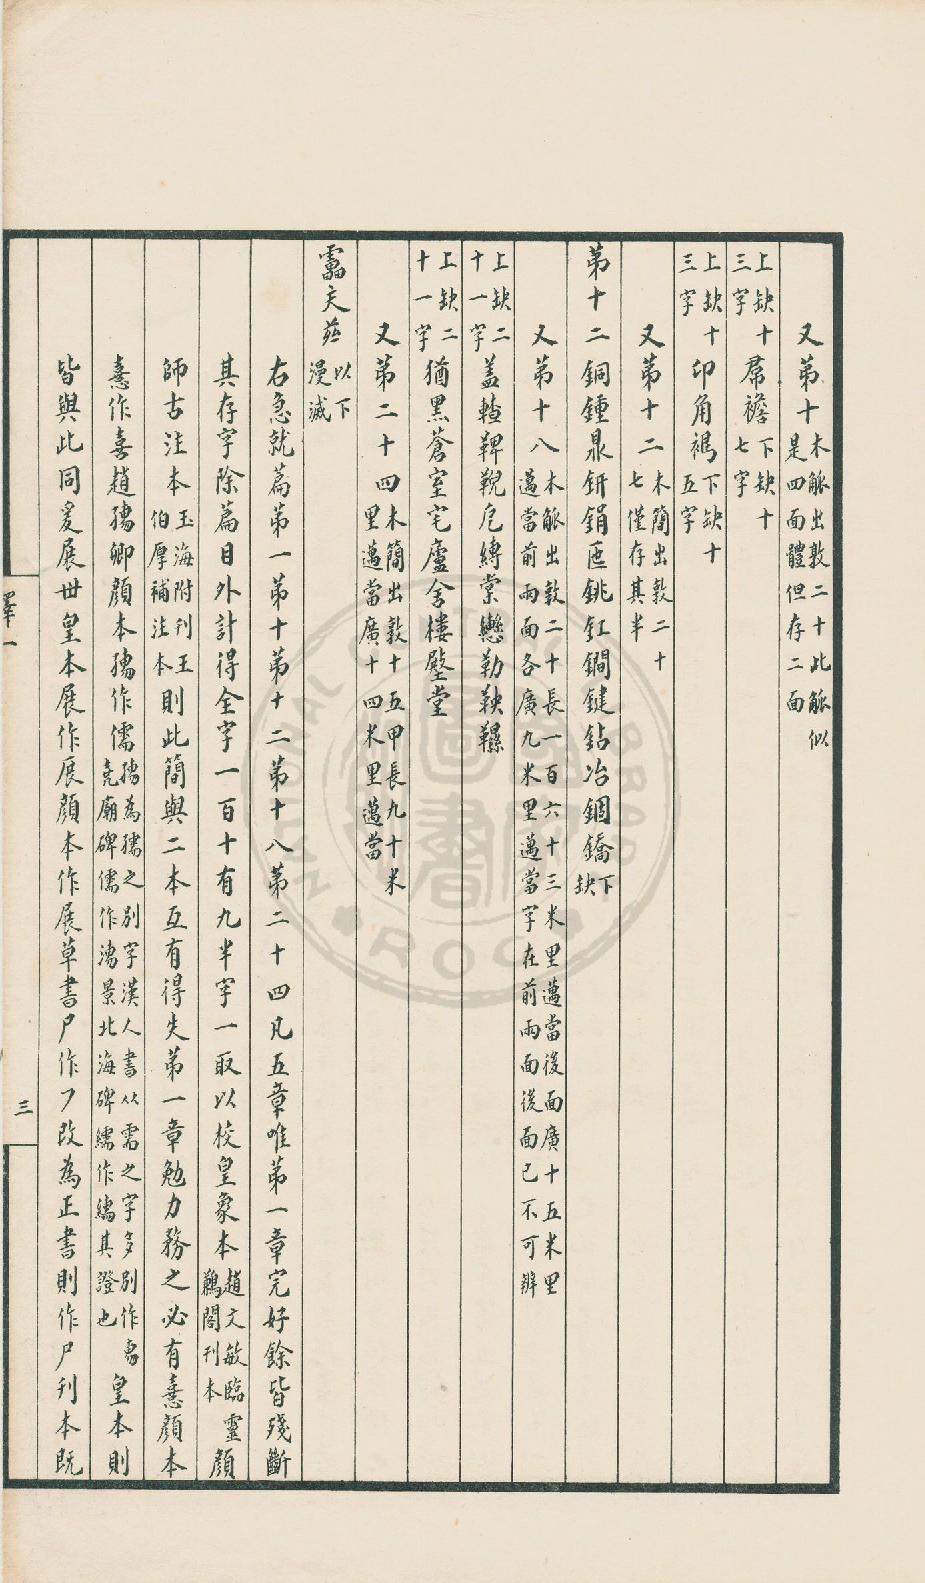 又第十木觚出敦二十此觚似是四面體但存二面
上缺十三字席襜下缺十七字
上缺十三字印角褐下缺十五字
又第十二木簡出敦二十七僅存其半
第十二銅鍾鼎鈃鋗匜銚釭鐧鍵鉆冶錮鐈下缺
又第十八木觚出敦二十長一百六十三米里邁當後面廣十五米里邁當前兩面各廣九米里邁當字在前兩面後面已不可辨
上缺二十一字蓋䡩鞞𩊾戹縛棠轡勒鞅韅
上缺二十一字猶黑蒼室宅廬舍樓壂堂
又第二十四木簡出敦十五甲長九十米里邁當廣十四米里邁當
靁矢 以下漫滅
右急就篇第一第十第十二第十八第二十四凡五章唯第一章完好餘皆殘斷
其存字除篇目外計得全字一百十有九半字一取以校皇象本趙文敏臨靈鶼閣刊本顏
師古注本玉海附刊王伯厚補注本則此簡與二本互有得失第一章勉力務之必有憙顏本
憙作喜趙獳卿顏本獳作儒獳為孺之別字漢人書从需之字多別作𦓝堯廟碑儒作濡景北海碑繻作繻其證也皇本則
皆與此同爰展世皇本展作展顏本作展草書尸作ㄱ改為正書則作尸刊本既
釋一
三